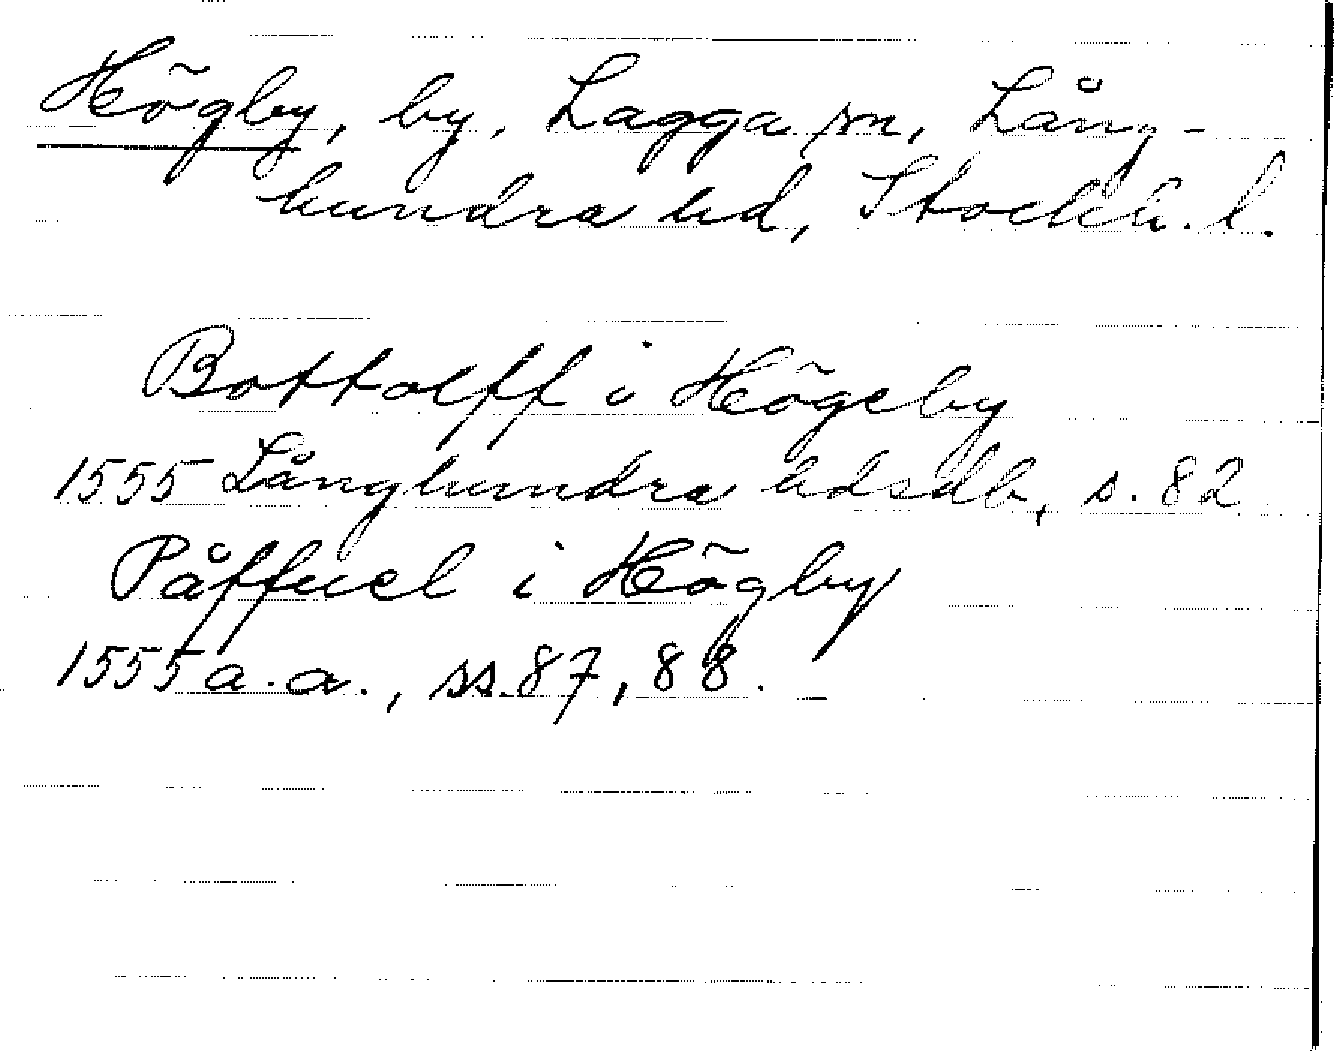 Högby, by, Lagga sn, Lång-
hundra hd, Stockh. l.
Bottolff i Högeby
1555 Långhundra hdsdb, s. 82
Påffuel i Högby
1555 a.a., ss. 87, 88.